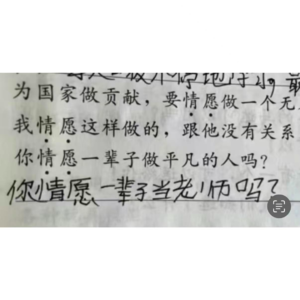 为国家做贡献，要情愿做一个无
我情愿这样做的，跟他没有关系
你情愿一辈子做平凡的人吗？
你情愿一辈子当老师吗？